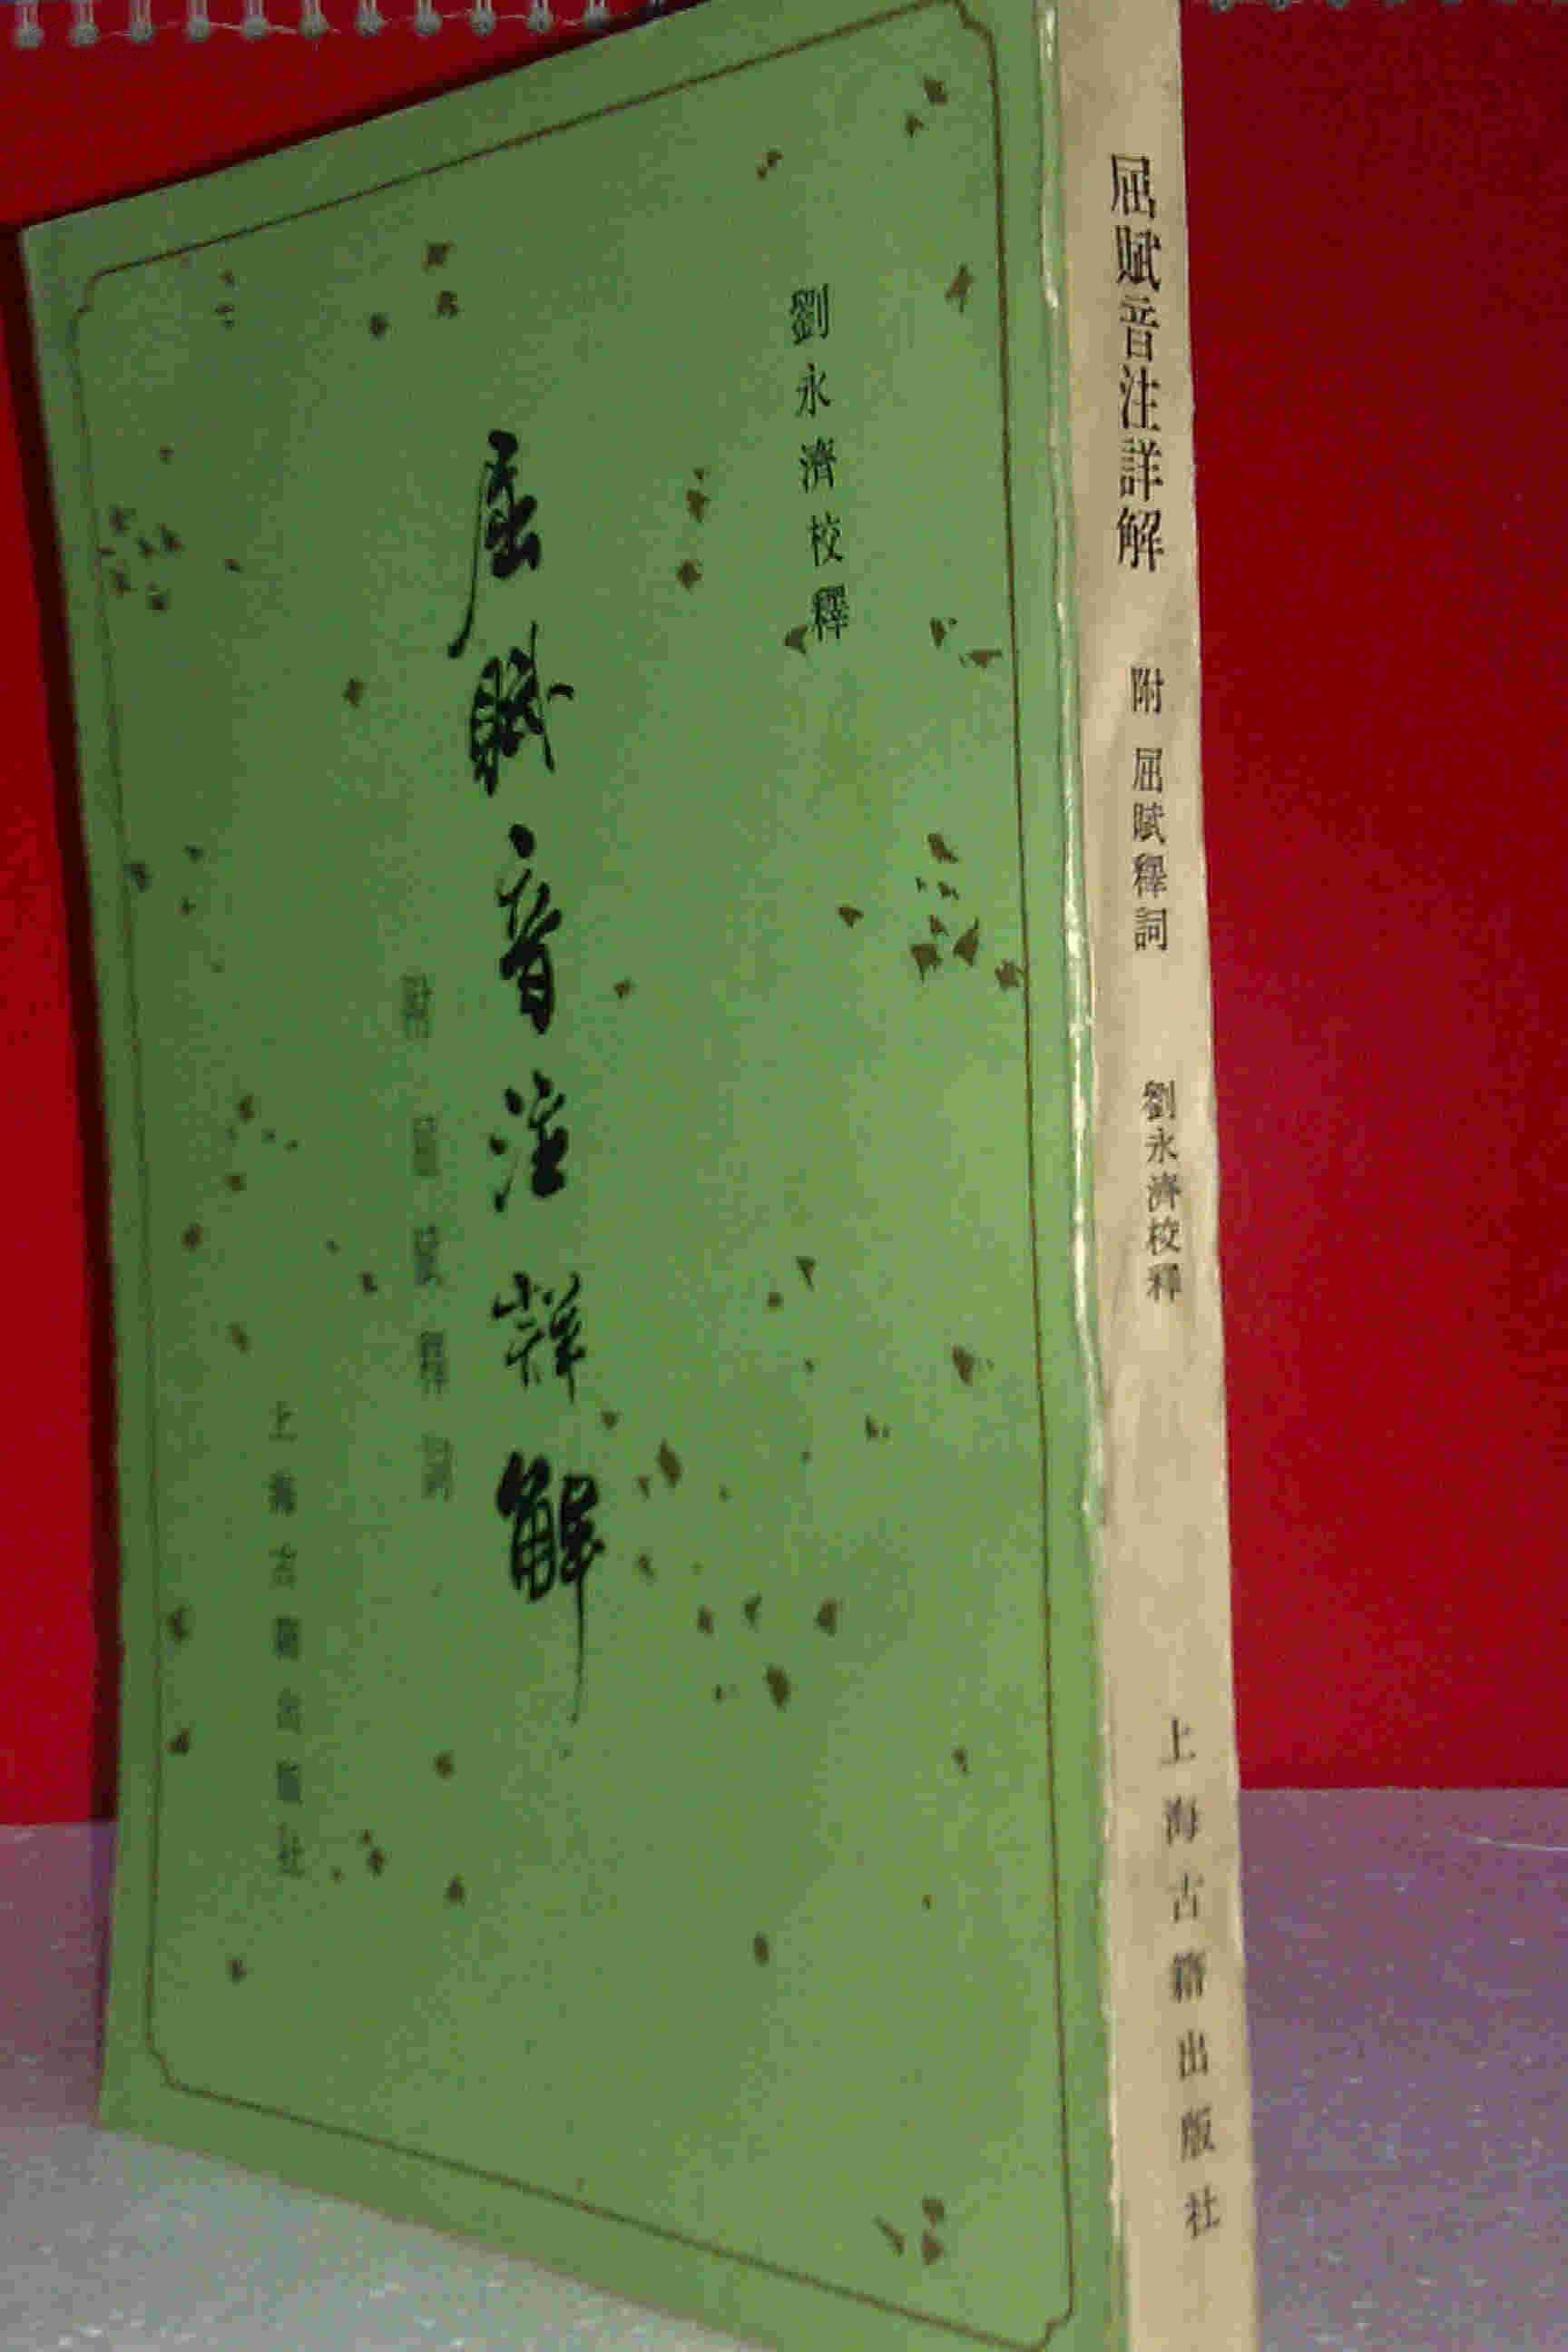 劉永濟校釋
屈賦音注詳解
附 屈賦釋詞
上海古籍出版社
屈賦音注詳解 附 屈賦釋詞 劉永濟校釋 上海古籍出版社